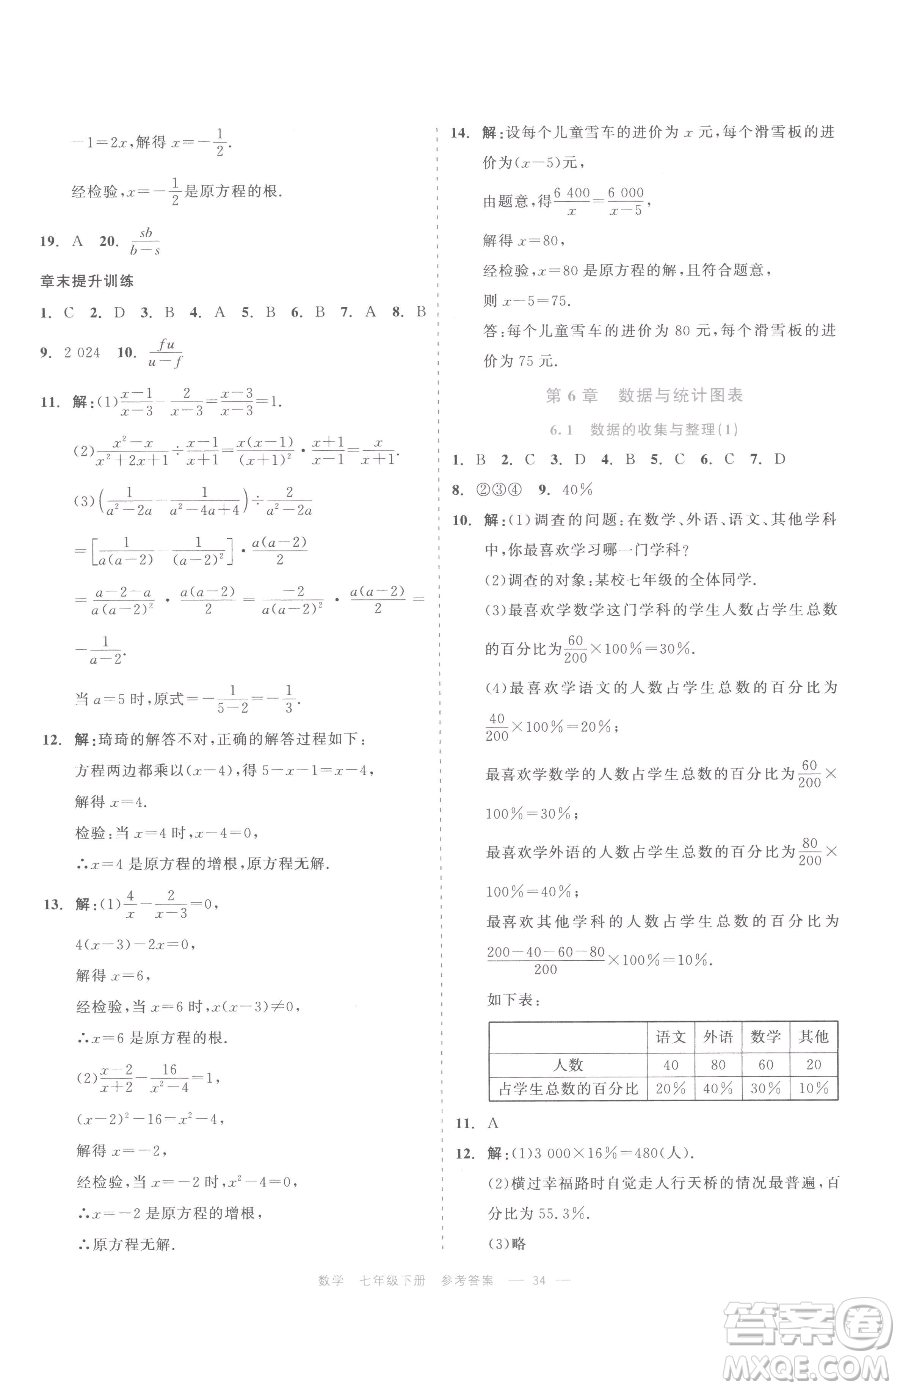 -1=2x,解得 x=-1/2.
经检验,x=-1/2是原方程的根.
19. A 20. sb/(b-s)
章末提升训练
1. C 2. D 3. B 4. A 5. B 6. B 7. A 8. B
9. 2 024 10. fu/(u-f)
11. 解:(1)(x-1)/(x-3)-2/(x-3)=(x-3)/(x-3)=1.
(2)(x²-x)/(x²+2x+1)÷(x-1)/(x+1)=x(x-1)/(x+1)²·(x+1)/(x-1)=x/(x+1).
(3)(1/(a²-2a)-1/(a²-4a+4))÷2/(a²-2a)
=[1/a(a-2)-1/(a-2)²]·a(a-2)/2
=(a-2-a)/a(a-2)²·a(a-2)/2=-2/a(a-2)²·a(a-2)/2=
-1/(a-2).
当 a=5 时,原式=-1/(5-2)=-1/3.
12. 解:琦琦的解答不对,正确的解答过程如下:
方程两边都乘以(x-4),得 5-x-1=x-4,
解得 x=4.
检验:当 x=4 时,x-4=0,
∴x=4 是原方程的增根,原方程无解.
13. 解:(1)4/x-2/(x-3)=0,
4(x-3)-2x=0,
解得 x=6,
经检验,当 x=6 时,x(x-3)≠0,
∴x=6 是原方程的根.
(2)(x-2)/(x+2)-16/(x²-4)=1,
(x-2)²-16=x²-4,
解得 x=-2,
经检验:当 x=-2 时,x²-4=0,
∴x=-2 是原方程的增根,
∴原方程无解.
14. 解:设每个儿童雪车的进价为 x 元,每个滑雪板的进
价为(x-5)元,
由题意,得6 400/x=6 000/(x-5),
解得 x=80,
经检验,x=80 是原方程的解,且符合题意,
则 x-5=75.
答:每个儿童雪车的进价为 80 元,每个滑雪板的进
价为 75 元.
第 6 章 数据与统计图表
6.1 数据的收集与整理(1)
1. B 2. C 3. D 4. B 5. C 6. C 7. D
8. ②③④ 9. 40%
10. 解:(1)调查的问题:在数学、外语、语文、其他学科
中,你最喜欢学习哪一门学科?
(2)调查的对象:某校七年级的全体同学.
(3)最喜欢学数学这门学科的学生人数占学生总数
的百分比为60/200×100%=30%.
(4)最喜欢学语文的人数占学生总数的百分比为
40/200×100%=20%;
最喜欢学数学的人数占学生总数的百分比为60/200×
100%=30%;
最喜欢学外语的人数占学生总数的百分比为80/200×
100%=40%;
最喜欢其他学科的人数占学生总数的百分比为
(200-40-60-80)/200×100%=10%.
如下表:
语文 外语 数学 其他
人数 40 80 60 20
占学生总数的百分比 20% 40% 30% 10%
11. A
12. 解:(1)3 000×16%=480(人).
(2)横过幸福路时自觉走人行天桥的情况最普遍,百
分比为 55.3%.
(3)略
数学 七年级下册 参考答案 — 34 —
答案圈
MXQE.COM